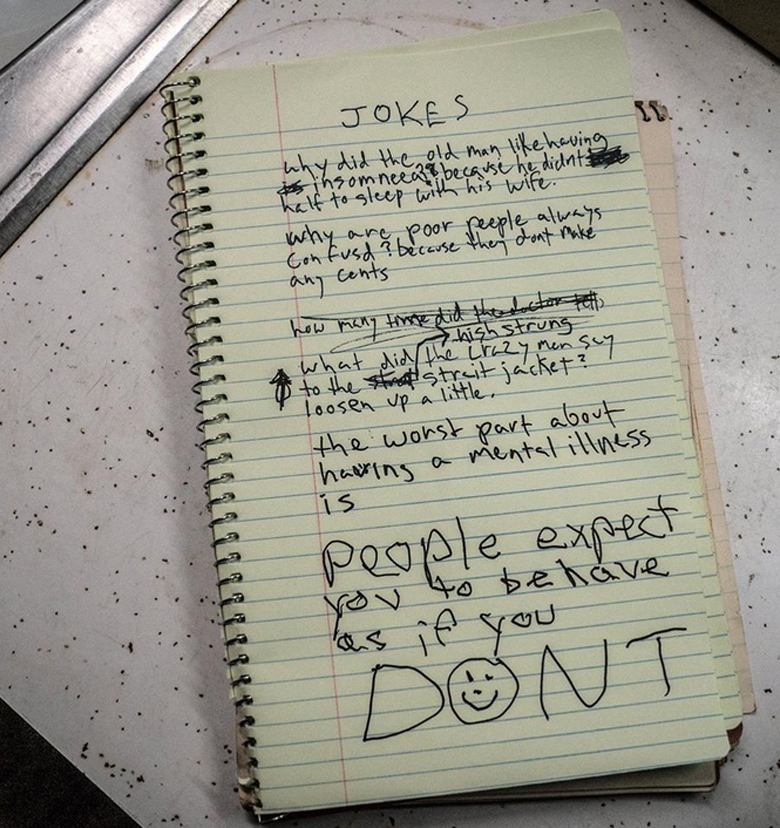 JOKES
why did the old man like having
insomneea? because he didnt
half to sleep with his wife.
why are poor peeple always
confusd? because they dont make
any cents
how many time did the doctor tell
high strung
what did the crazy man say
to the strait jacket?
loosen up a little.
the worst part about
having a mental illness
is
people expect
you to behave
as if you
DONT